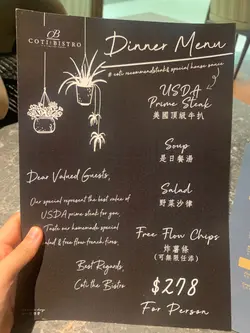 CB
COTI BISTRO
Dinner Menu
# coti recommendsteak & special house sauce
USDA
Prime Steak
美國頂級牛扒
Soup
是日餐湯
Salad
野菜沙律
Free Flow Chips
炸薯條
(可無限任添)
$278
For Person
Dear Valued Guests,
Our special represent the best value of
USDA prime steak for you,
Taste our homemade special
salad & free flow french fries.
Best Regards,
Coti the Bistro